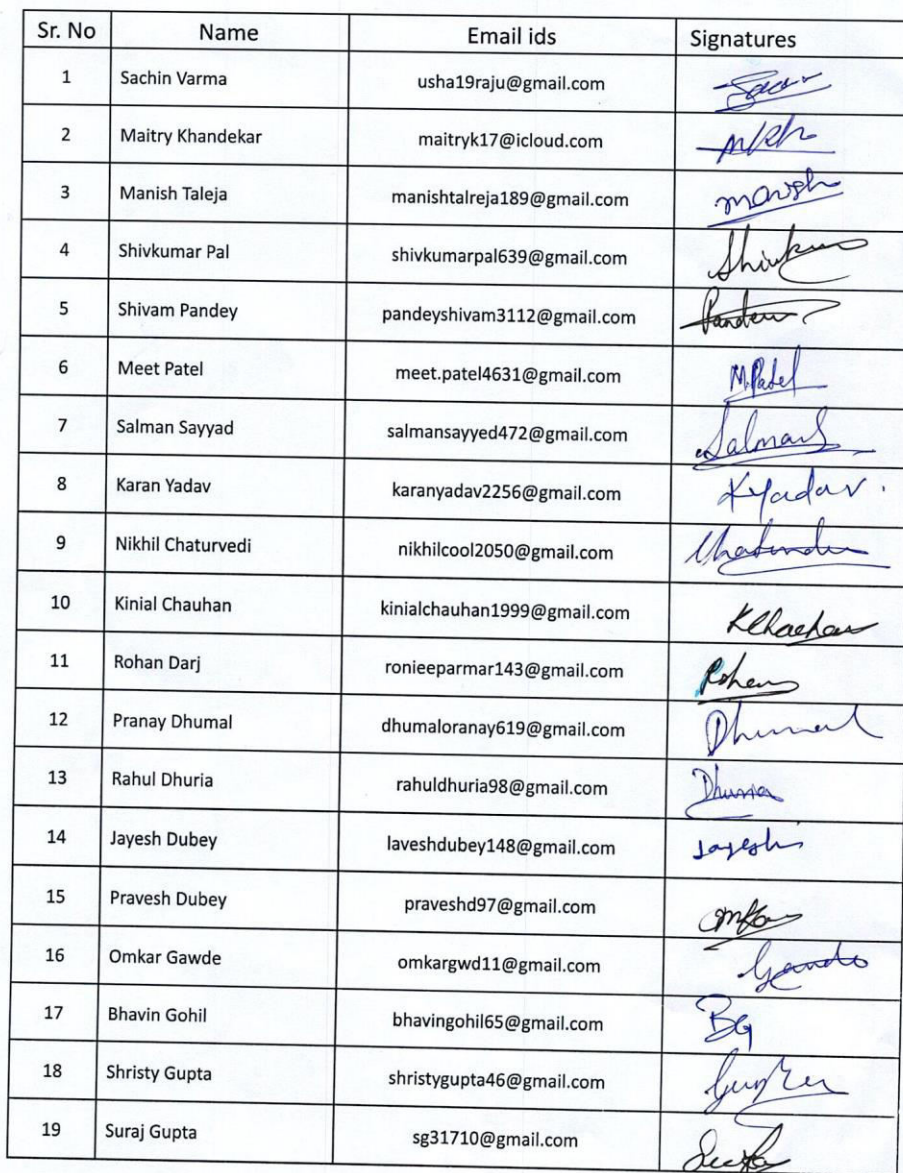 Sr. No Name Email ids Signatures
1 Sachin Varma usha19raju@gmail.com
2 Maitry Khandekar maitryk17@icloud.com
3 Manish Taleja manishtalreja189@gmail.com manish
4 Shivkumar Pal shivkumarpal639@gmail.com
5 Shivam Pandey pandeyshivam3112@gmail.com
6 Meet Patel meet.patel4631@gmail.com M.Patel
7 Salman Sayyad salmansayyed472@gmail.com SalmanS
8 Karan Yadav karanyadav2256@gmail.com KYadav.
9 Nikhil Chaturvedi nikhilcool2050@gmail.com
10 Kinial Chauhan kinialchauhan1999@gmail.com
11 Rohan Darj ronieeparmar143@gmail.com
12 Pranay Dhumal dhumaloranay619@gmail.com Dhumal
13 Rahul Dhuria rahuldhuria98@gmail.com Dhuria
14 Jayesh Dubey laveshdubey148@gmail.com
15 Pravesh Dubey praveshd97@gmail.com
16 Omkar Gawde omkargwd11@gmail.com
17 Bhavin Gohil bhavingohil65@gmail.com BG
18 Shristy Gupta shristygupta46@gmail.com
19 Suraj Gupta sg31710@gmail.com